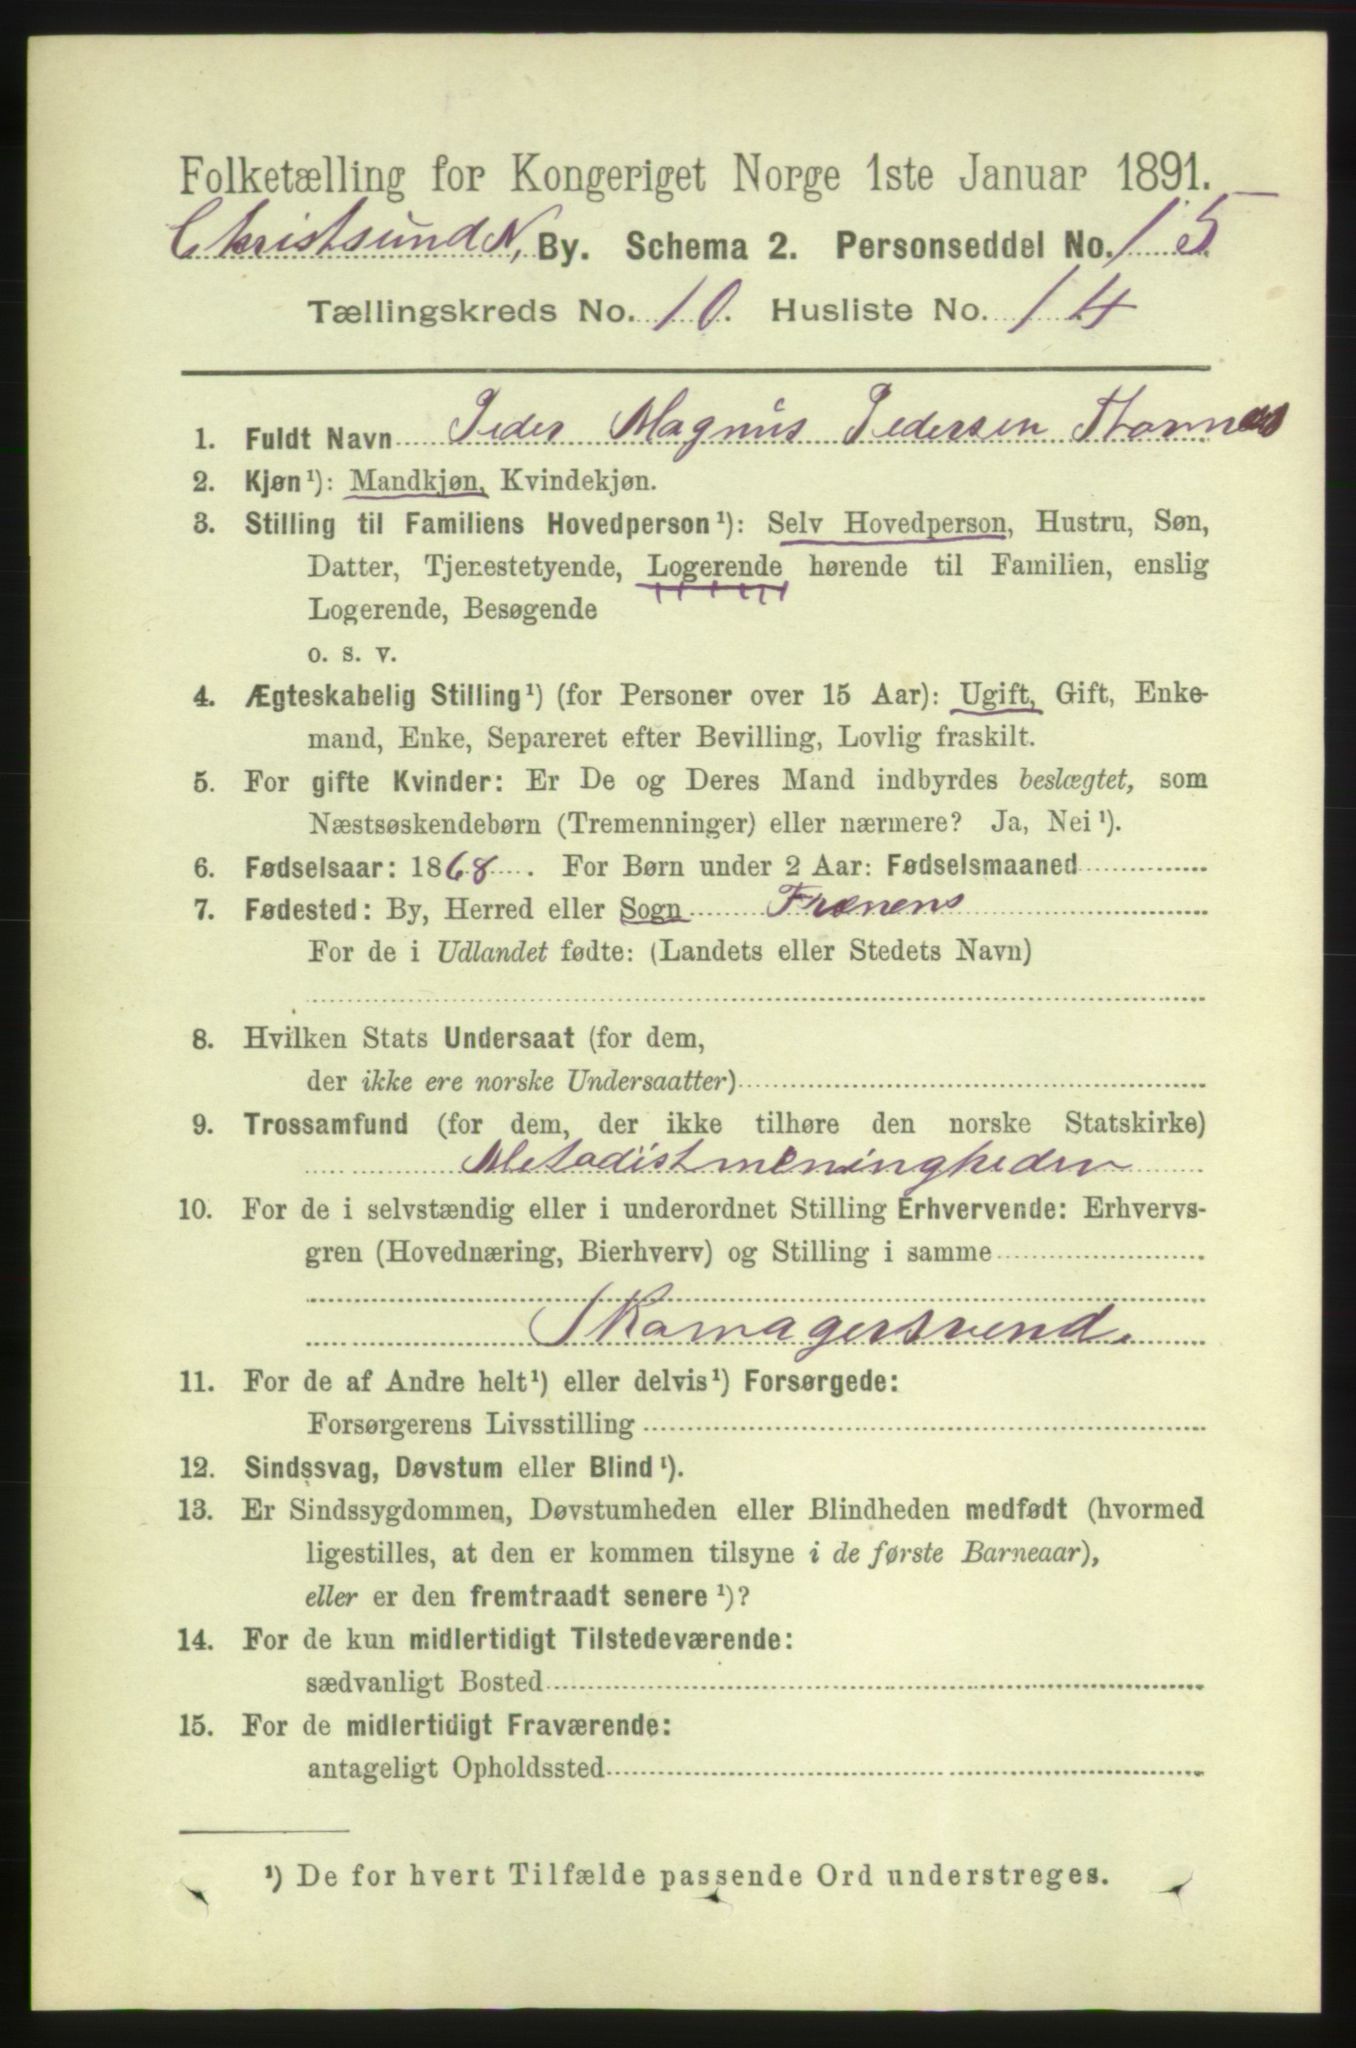 Folketælling for Kongeriget Norge 1ste Januar 1891.
Christsund N, By. Schema 2. Personseddel No. 15.
Tællingskreds No. 10. Husliste No. 14
1. Fuldt Navn Peder Magnus Pedersen
2. Kjøn¹): Mandkjøn, Kvindekjøn.
3. Stilling til Familiens Hovedperson¹): Selv Hovedperson, Hustru, Søn,
Datter, Tjenestetyende, Logerende hørende til Familien, enslig
Logerende, Besøgende
o. s. v.
4. Ægteskabelig Stilling¹) (for Personer over 15 Aar): Ugift, Gift, Enke-
mand, Enke, Separeret efter Bevilling, Lovlig fraskilt.
5. For gifte Kvinder: Er De og Deres Mand indbyrdes beslægtet, som
Næstsøskendebørn (Tremenninger) eller nærmere? Ja, Nei¹).
6. Fødselsaar: 1868. For Børn under 2 Aar: Fødselsmaaned
7. Fødested: By, Herred eller Sogn Frænens
For de i Udlandet fødte: (Landets eller Stedets Navn)
8. Hvilken Stats Undersaat (for dem,
der ikke ere norske Undersaatter)
9. Trossamfund (for dem, der ikke tilhøre den norske Statskirke)
Metodistmeningheden
10. For de i selvstændig eller i underordnet Stilling Erhvervende: Erhvervs-
gren (Hovednæring, Bierhverv) og Stilling i samme
Skomagersvend.
11. For de af Andre helt¹) eller delvis¹) Forsørgede:
Forsørgerens Livsstilling
12. Sindssvag, Døvstum eller Blind¹).
13. Er Sindssygdommen, Døvstumheden eller Blindheden medfødt (hvormed
ligestilles, at den er kommen tilsyne i de første Barneaar),
eller er den fremtraadt senere¹)?
14. For de kun midlertidigt Tilstedeværende:
sædvanligt Bosted
15. For de midlertidigt Fraværende:
antageligt Opholdssted
¹) De for hvert Tilfælde passende Ord understreges.